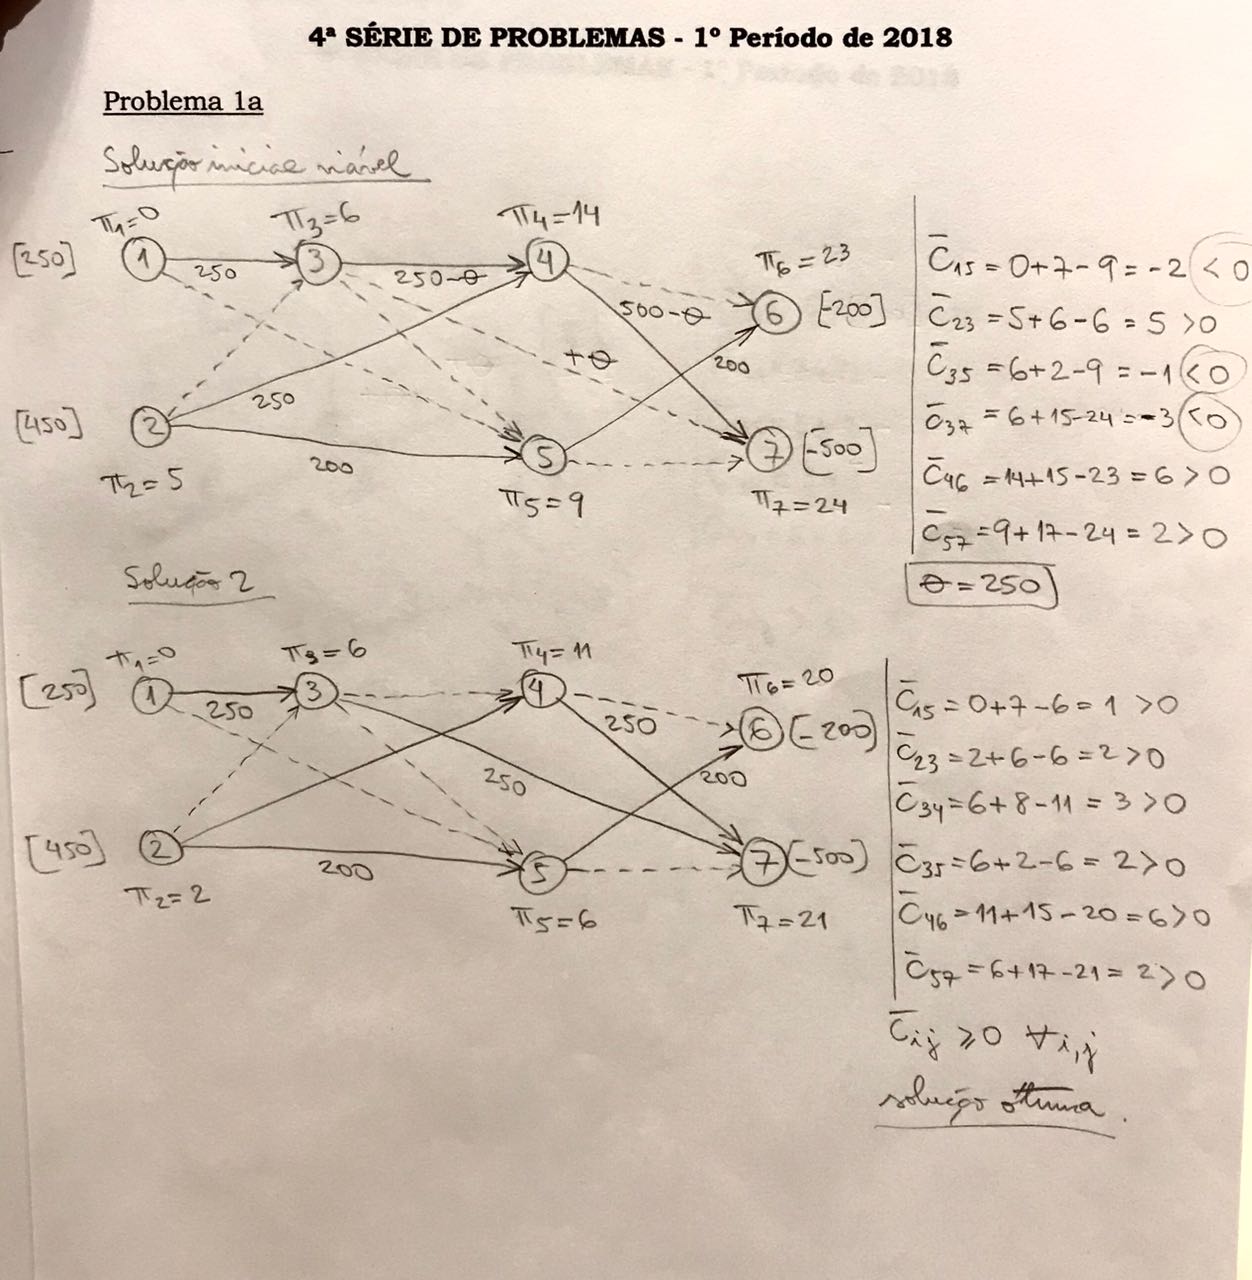 4ª SÉRIE DE PROBLEMAS - 1º Período de 2018
Problema 1a
Solução inicial viável
π₁=0 π₃=6 π₄=14
[250] 1 250 3 250-θ 4
π₆=23
500-θ 6 [-200]
+θ 200
250
[450] 2 200 5 7 [-500]
π₂=5 π₅=9 π₇=24
C̄₁₅ = 0+7-9 = -2 <0
C̄₂₃ = 5+6-6 = 5 >0
C̄₃₅ = 6+2-9 = -1 <0
C̄₃₇ = 6+15-24 = -3 <0
C̄₄₆ = 14+15-23 = 6 >0
C̄₅₇ = 9+17-24 = 2 >0
θ = 250
Solução 2
π₁=0 π₃=6 π₄=11
[250] 1 250 3 4
π₆=20
250 6 [-200]
250 200
[450] 2 200 5 7 [-500]
π₂=2 π₅=6 π₇=21
C̄₁₅ = 0+7-6 = 1 >0
C̄₂₃ = 2+6-6 = 2 >0
C̄₃₄ = 6+8-11 = 3 >0
C̄₃₅ = 6+2-6 = 2 >0
C̄₄₆ = 11+15-20 = 6 >0
C̄₅₇ = 6+17-21 = 2 >0
C̄ij ⩾0 ∀i,j
solução ótima.